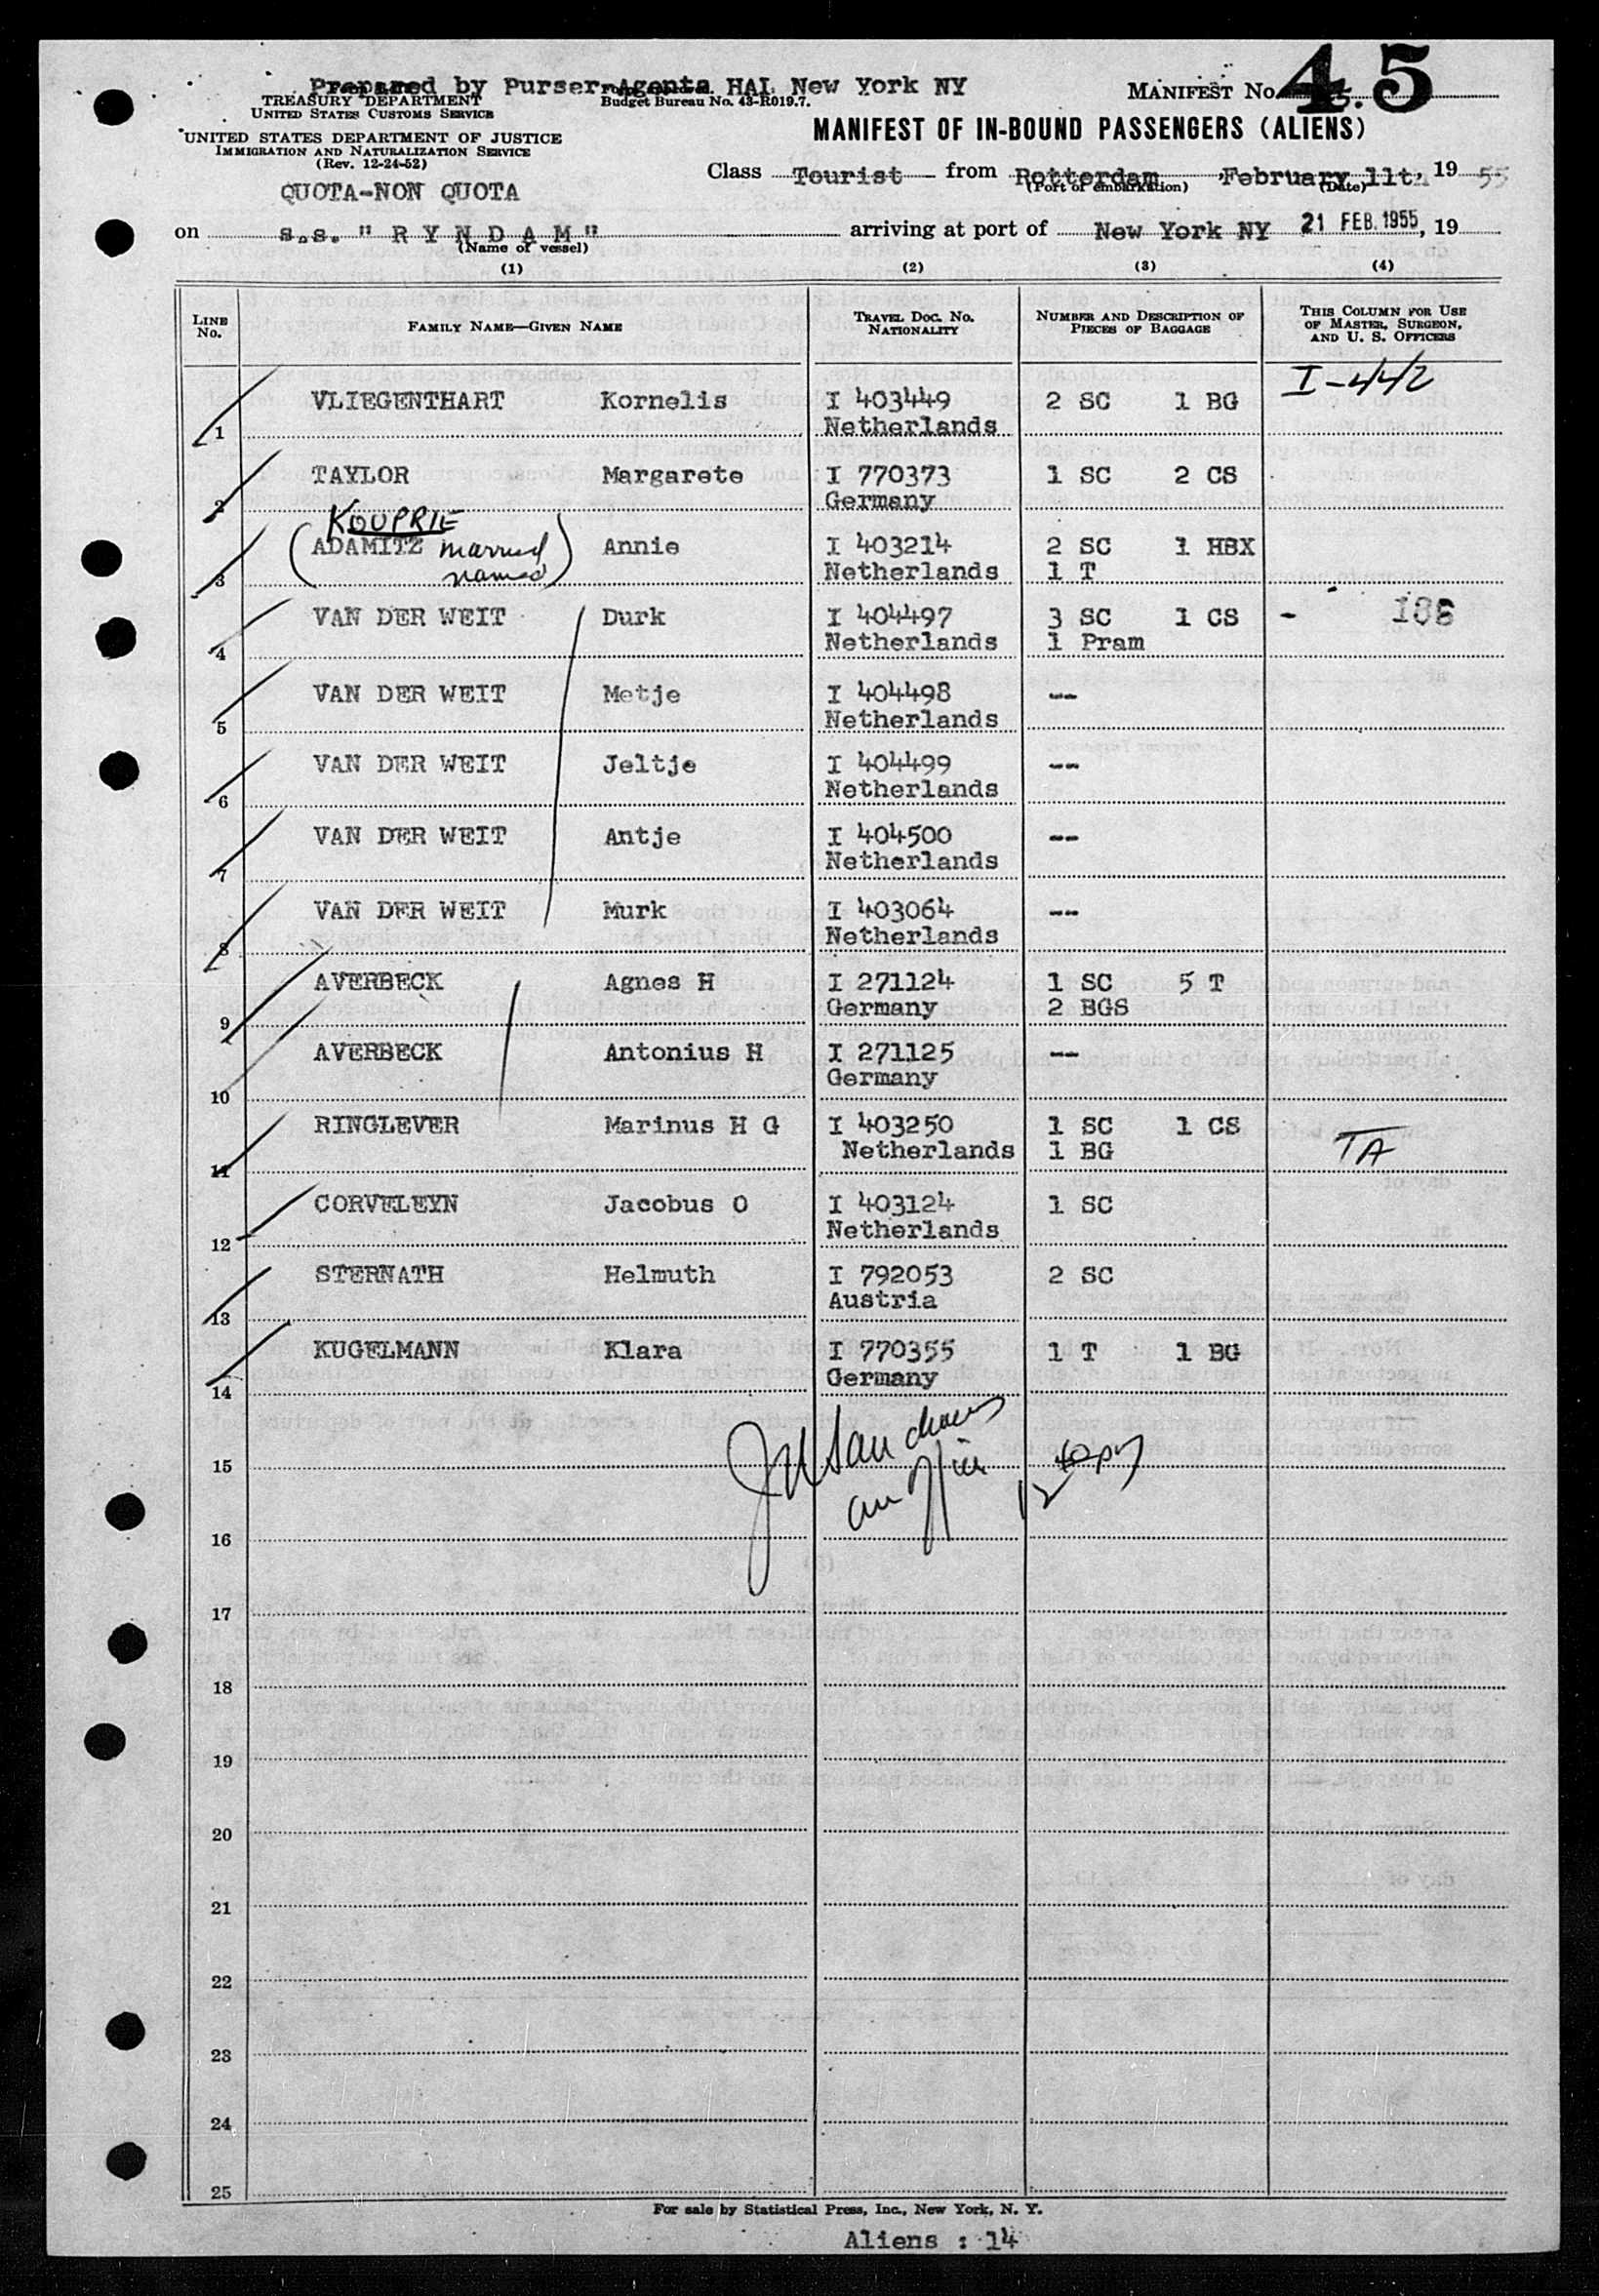 Prepared by Purser-Agents HAL New York NY
TREASURY DEPARTMENT
UNITED STATES CUSTOMS SERVICE
Budget Bureau No. 43-R019.7.
MANIFEST No. 45
UNITED STATES DEPARTMENT OF JUSTICE
IMMIGRATION AND NATURALIZATION SERVICE
(Rev. 12-24-52)
MANIFEST OF IN-BOUND PASSENGERS (ALIENS)
QUOTA-NON QUOTA
Class Tourist from Rotterdam, February 11t, 19 55
(Port of embarkation) (Date)
on s.s. "RYNDAM" arriving at port of New York NY 21 FEB. 1955, 19
(Name of vessel)
(1) (2) (3) (4)
LINE No. FAMILY NAME—GIVEN NAME TRAVEL DOC. No. NATIONALITY NUMBER AND DESCRIPTION OF PIECES OF BAGGAGE THIS COLUMN FOR USE OF MASTER, SURGEON, AND U. S. OFFICERS
I-442
VLIEGENTHART Kornelis I 403449 2 SC 1 BG
1 Netherlands
TAYLOR Margarete I 770373 1 SC 2 CS
2 Germany
KOUPRIE
(ADAMITZ married Annie I 403214 2 SC 1 HBX
3 name) Netherlands 1 T
VAN DER WEIT Durk I 404497 3 SC 1 CS - 188
4 Netherlands 1 Pram
VAN DER WEIT Metje I 404498 --
5 Netherlands
VAN DER WEIT Jeltje I 404499 --
6 Netherlands
VAN DER WEIT Antje I 404500 --
7 Netherlands
VAN DER WEIT Murk I 403064 --
8 Netherlands
AVERBECK Agnes H I 271124 1 SC 5 T
9 Germany 2 BGS
AVERBECK Antonius H I 271125 --
10 Germany
RINGLEVER Marinus H G I 403250 1 SC 1 CS
11 Netherlands 1 BG TA
CORVELEYN Jacobus O I 403124 1 SC
12 Netherlands
STERNATH Helmuth I 792053 2 SC
13 Austria
KUGELMANN Klara I 770355 1 T 1 BG
14 Germany
15
16
17
18
19
20
21
22
23
24
25
For sale by Statistical Press, Inc., New York, N. Y.
Aliens : 14